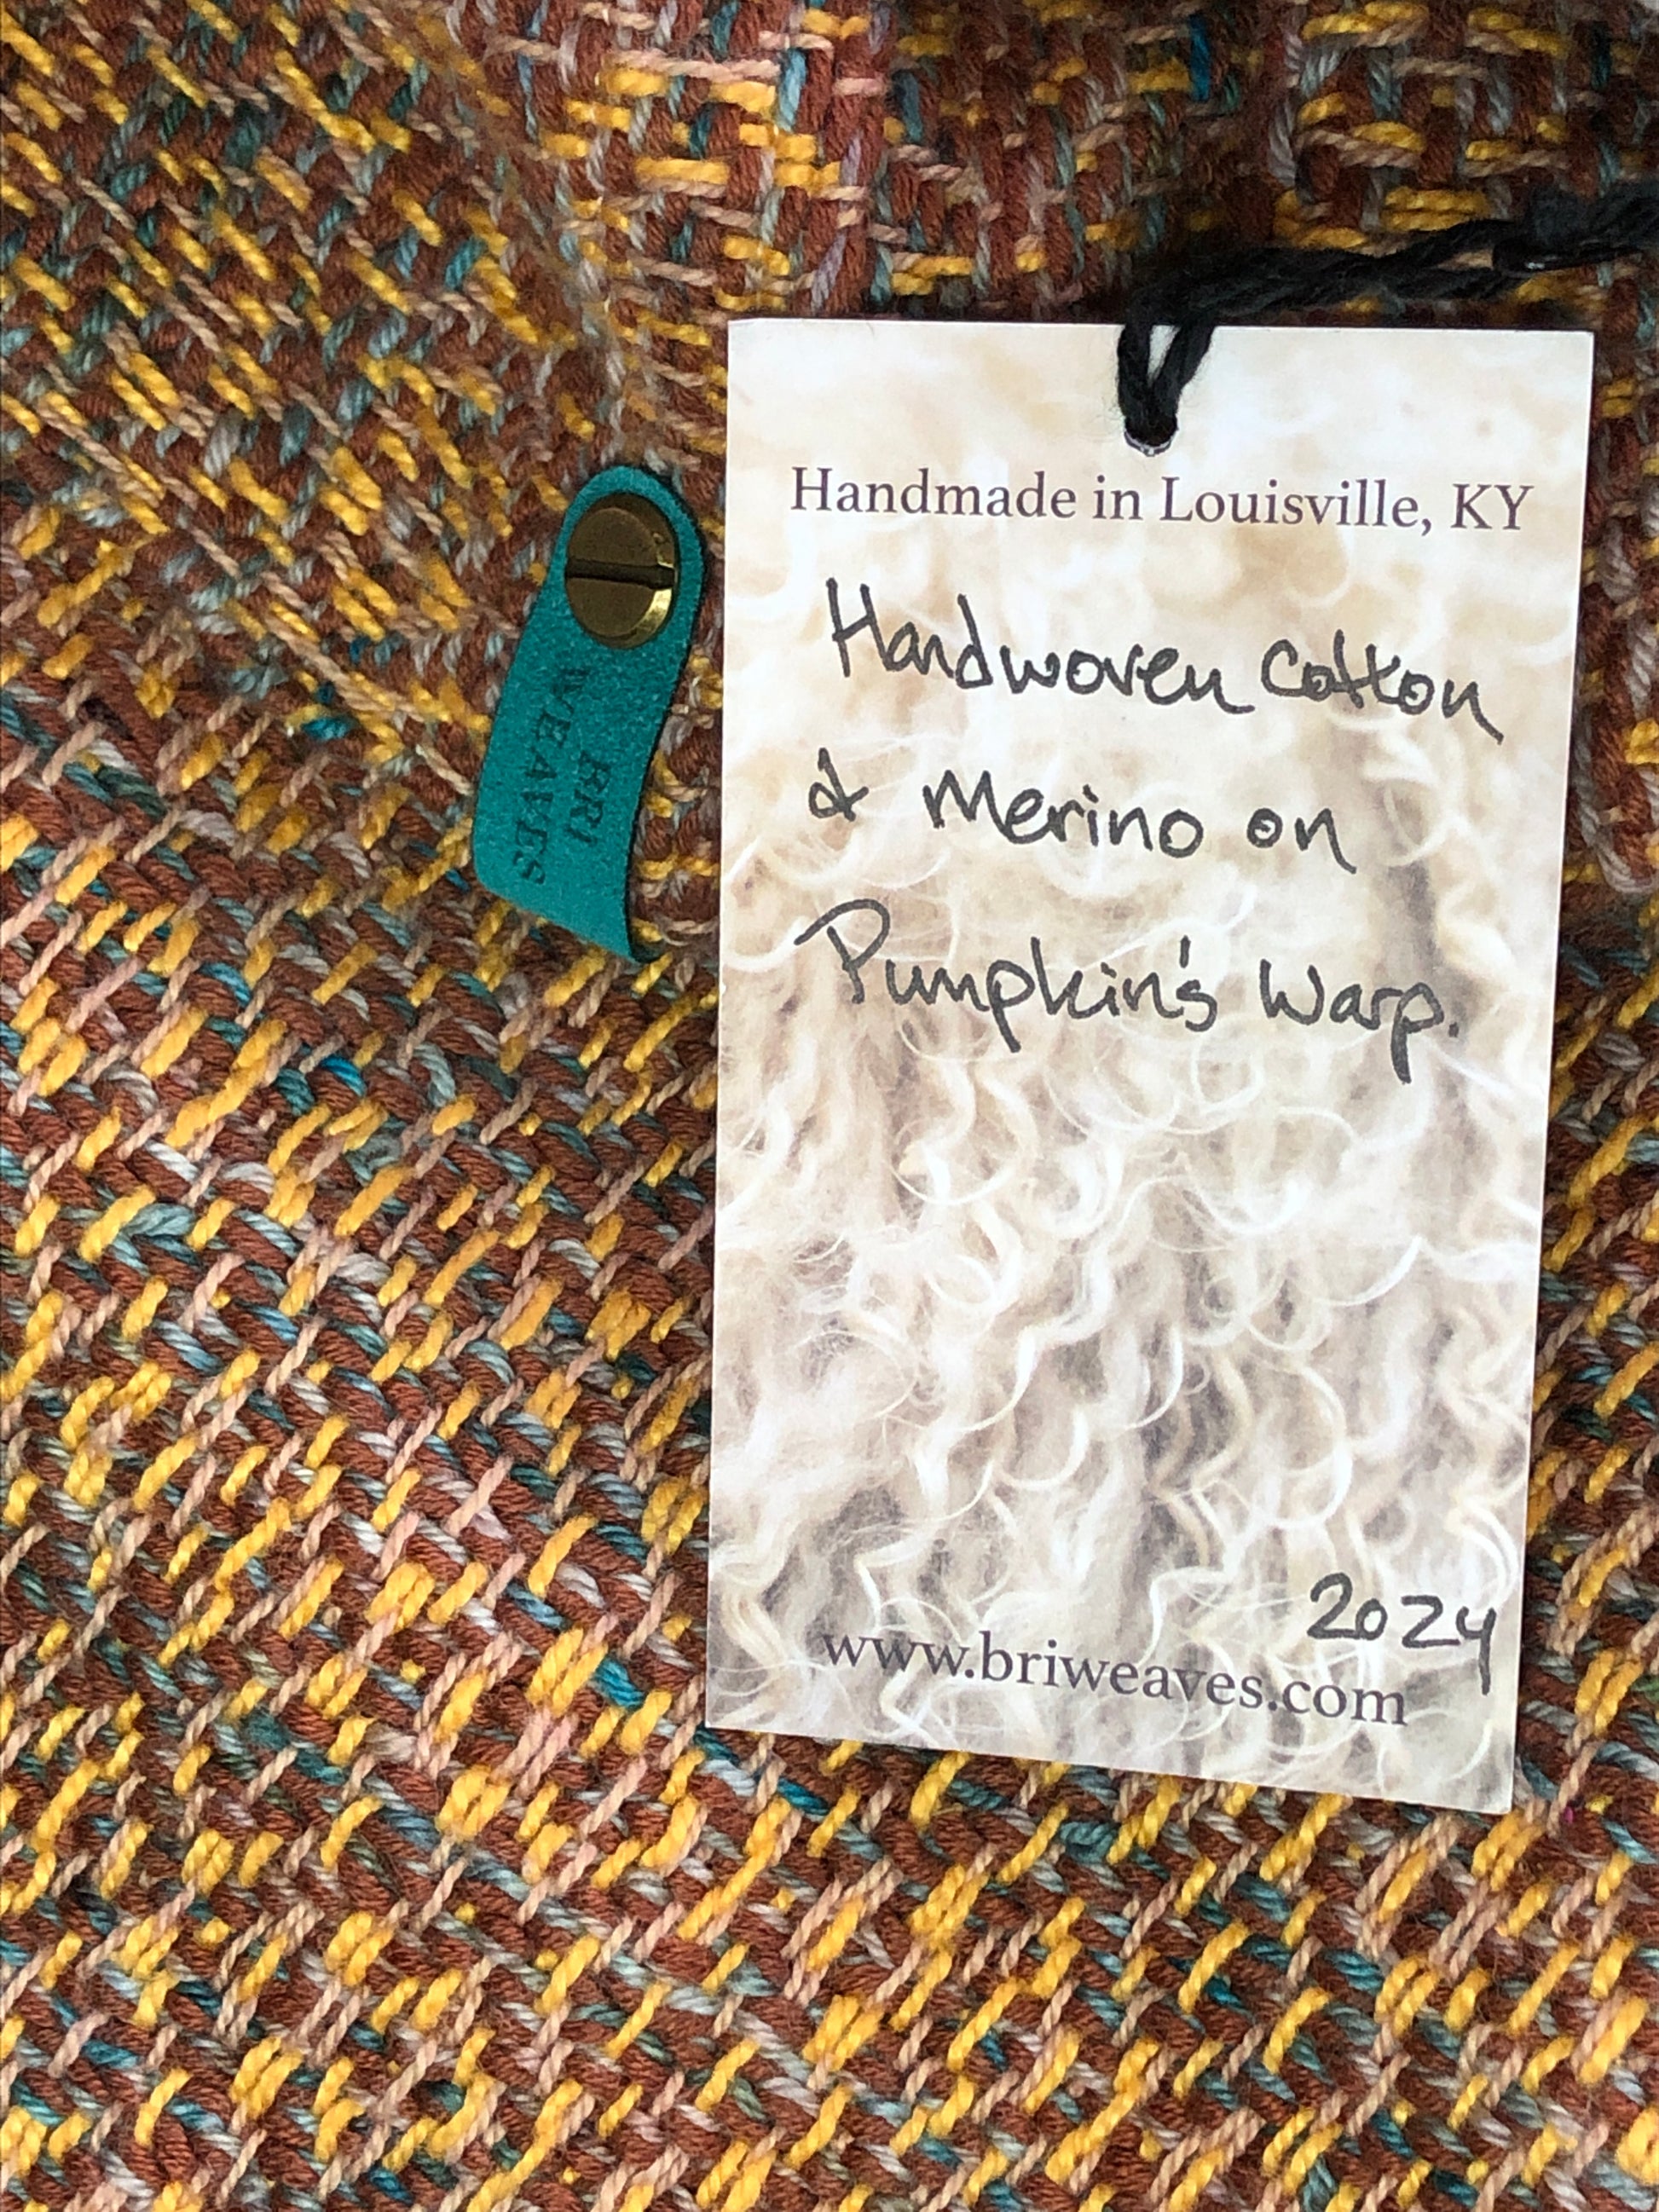 Handmade in Louisville, KY
Handwoven Cotton
& Merino on
Pumpkin's Warp.
2024
www.briweaves.com
BRI
WEAVES